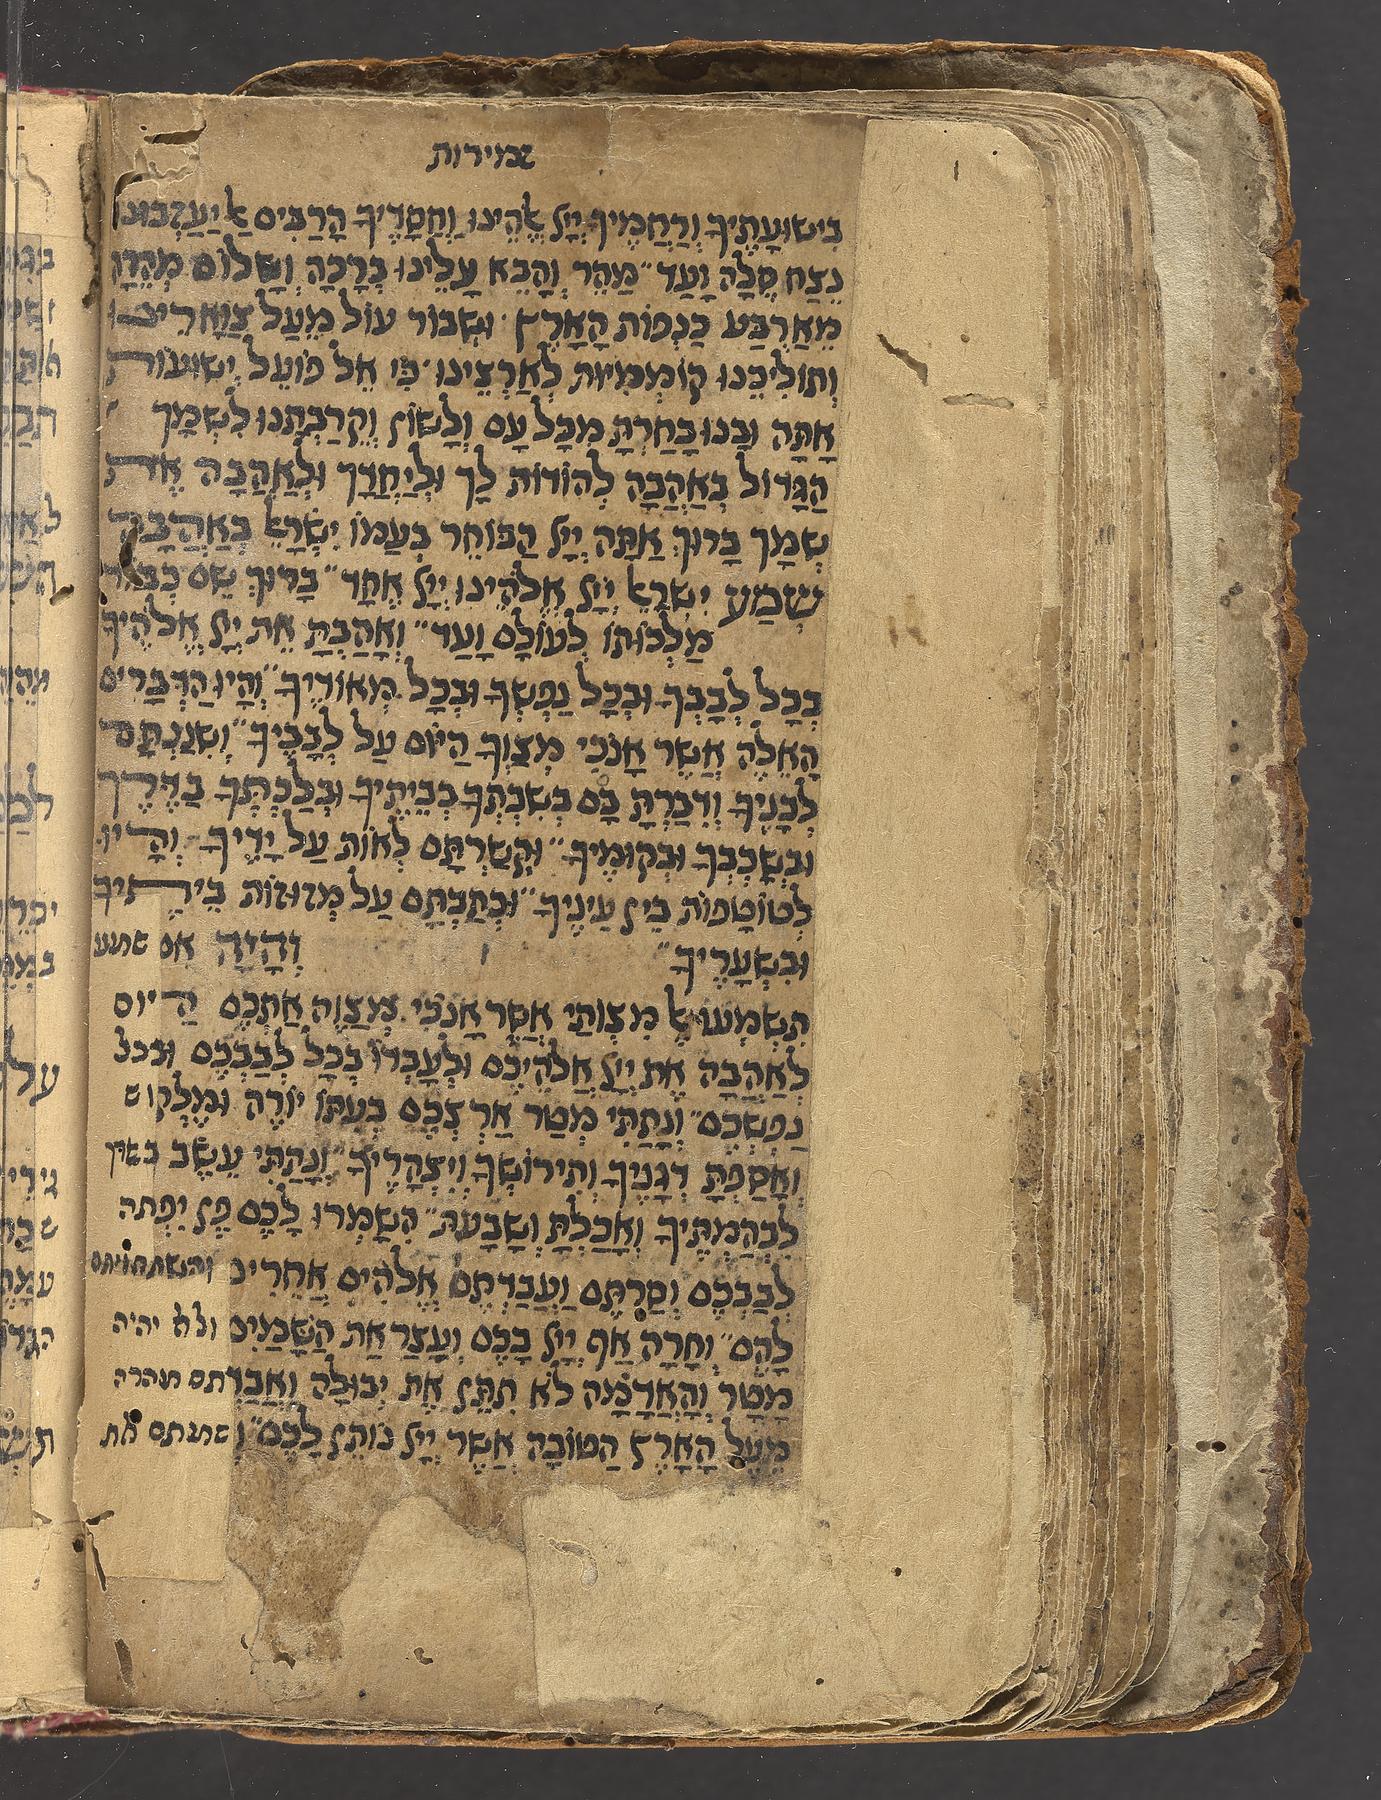 זמירות
בִישׁוּעָתֶיךָ וְרַחֲמֶיךָ יְיָל אֱהֵינוּ וְחֲסָדֶיךָ הָרַבִּים אַ יַעַזְבוּנוּ
נֵצַח סֶלָה וָעַד״ מַהֵר וְהָבֵא עָלֵינוּ בְּרָכָה וְשָׁלוֹם מְהֵרָה
מֵאַרְבַּע כַּנְפוֹת הָאָרֶץ וּשְׁבוֹר עוֹל מֵעַל צַוָּארֵינוּ
וְתוֹלִיכֵנוּ קוֹמְמִיּוּת לְאַרְצֵינוּ כִּי אֵל פּוֹעֵל יְשׁוּעוֹת
אַתָּה וּבָנוּ בָחַרְתָּ מִכָּל עַם וְלָשׁוֹן וְקֵרַבְתָּנוּ לְשִׁמְךָ
הַגָּדוֹל בְּאַהֲבָה לְהוֹדוֹת לָךְ וּלְיַחֲדָךְ וּלְאַהֲבָה אֶת
שְׁמָךְ בָּרוּךְ אַתָּה יְיָל הַבּוֹחֵר בְּעַמּוֹ יִשְׂרָאֵל בְּאַהֲבָה
שְׁמַע יִשְׂרָאֵל יְיָל אֱלֹהֵינוּ יְיָל אֶחָד״ בָּרוּךְ שֵׁם כְּבוֹד
מַלְכוּתוֹ לְעוֹלָם וָעַד״ וְאָהַבְתָּ אֵת יְיָל אֱלֹהֶיךָ
בְּכָל לְבָבְךָ וּבְכָל נַפְשְׁךָ וּבְכָל מְאוֹדֶיךָ״ וְהָיוּ הַדְּבָרִים
הָאֵלֶּה אֲשֶׁר אָנֹכִי מְצַוְּךָ הַיּוֹם עַל לְבָבֶיךָ״ וְשִׁנַּנְתָּם
לְבָנֶיךָ וְדִבַּרְתָּ בָּם בְּשִׁבְתְּךָ בְּבֵיתֶיךָ וּבְלֶכְתְּךָ בַדֶּרֶךְ
וּבְשָׁכְבְּךָ וּבְקוּמֶיךָ״ וּקְשַׁרְתָּם לְאוֹת עַל יָדֶיךָ וְהָיוּ
לְטוֹטָפוֹת בֵּין עֵינֶיךָ״ וּכְתַבְתָּם עַל מְזוּזוֹת בֵּיתֶיךָ
וּבִשְׁעָרֶיךָ״ וְהָיָה אִם שמע
תִּשְׁמְעוּ אֶל מִצְוֹתַי אֲשֶׁר אָנֹכִי מְצַוֶּה אֶתְכֶם הַיּוֹם
לְאַהֲבָה אֶת יְיָל אֱלֹהֵיכֶם וּלְעָבְדוֹ בְּכָל לְבַבְכֶם ובכל
נַפְשְׁכֶם״ וְנָתַתִּי מְטַר אַרְצְכֶם בְּעִתּוֹ יוֹרֶה וּמַלְקוֹשׁ
וְאָסַפְתָּ דְגָנֶיךָ וְתִירוֹשְׁךָ וְיִצְהָרֶיךָ״ וְנָתַתִּי עֵשֶׂב בשדך
לִבְהֶמְתֶּיךָ וְאָכַלְתָּ וְשָׂבָעְתָּ״ הִשָּׁמְרוּ לָכֶם פֶּן יִפְתה
לְבַבְכֶם וְסַרְתֶּם וַעֲבַדְתֶּם אֱלֹהִים אֲחֵרִים והשתחויתם
לָהֶם״ וְחָרָה אַף יְיָל בָּכֶם וְעָצַר אֶת הַשָּׁמַיִם ולא יהיה
מָטָר וְהָאֲדָמָה לֹא תִתֵּן אֶת יְבוּלָהּ וַאֲבַדְתם מהרה
מֵעַל הָאָרֶץ הַטּוֹבָה אֲשֶׁר יְיָל נוֹתֵן לָכֶם״ ושמתם את